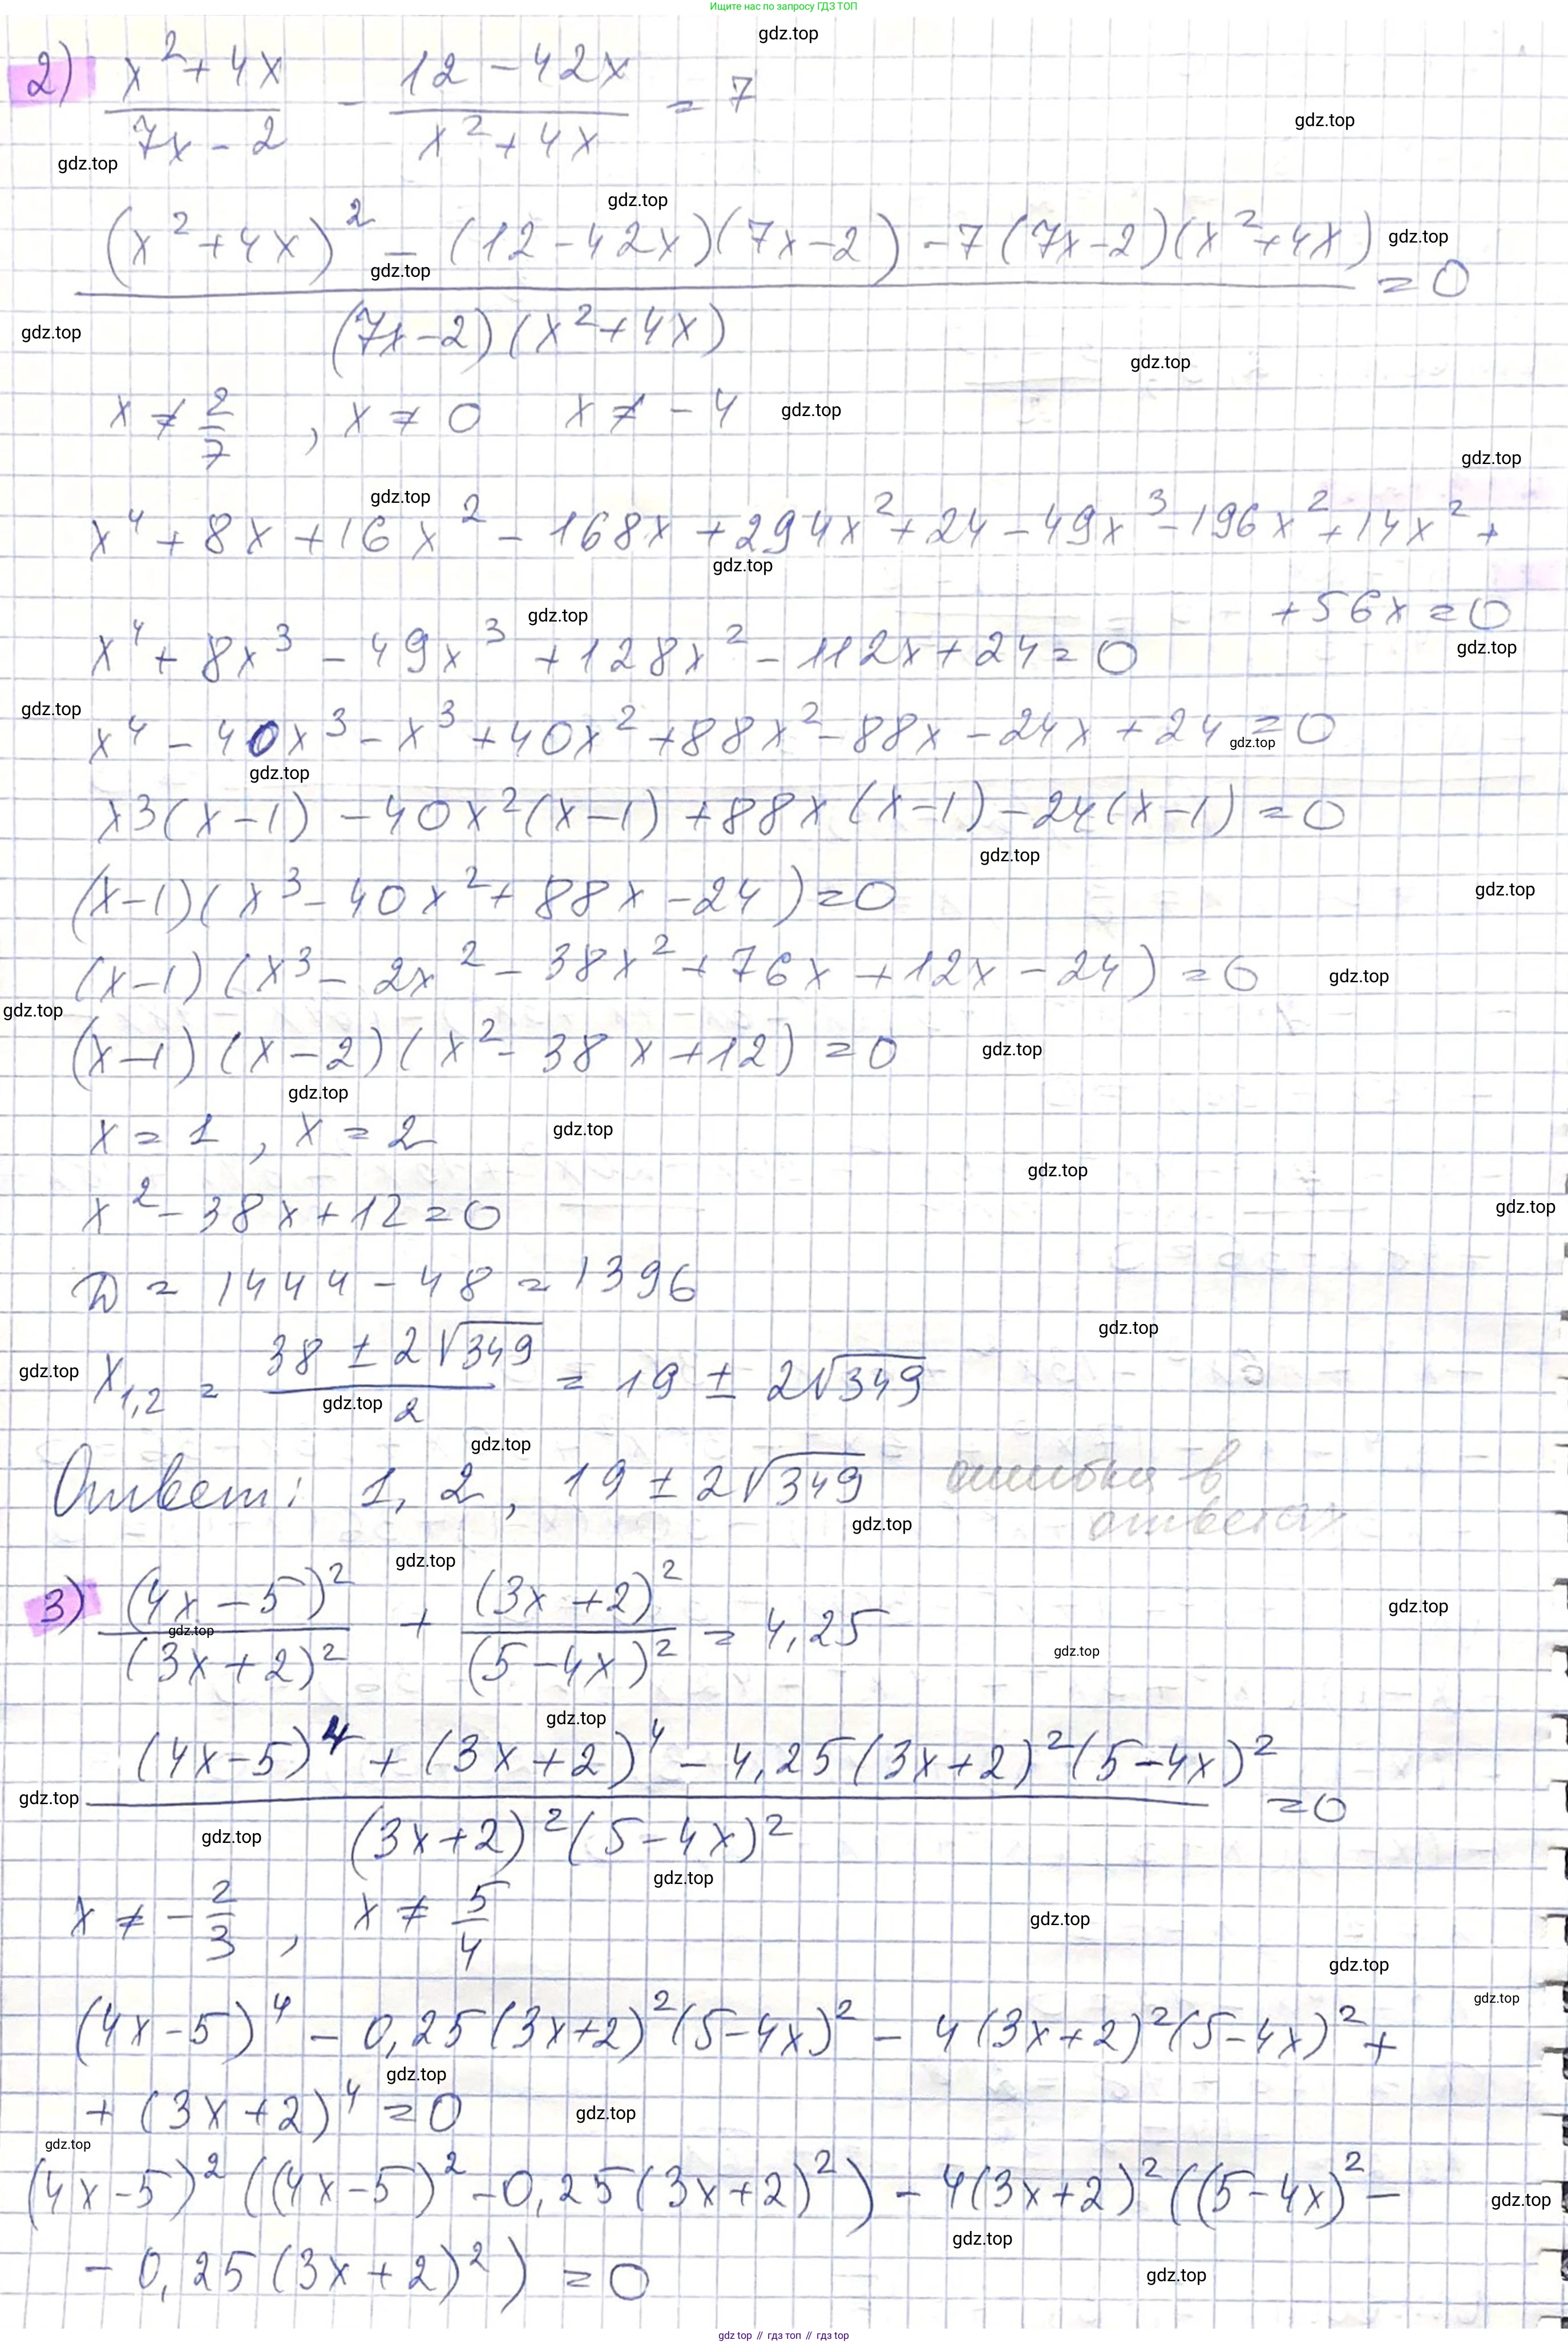 Ищите нас по запросу ГДЗ ТОП
gdz.top
2) (x²+4x)/(7x-2) - (12-42x)/(x²+4x) = 7
gdz.top
gdz.top
gdz.top
((x²+4x)² - (12-42x)(7x-2) - 7(7x-2)(x²+4x))/((7x-2)(x²+4x)) = 0
gdz.top
gdz.top
gdz.top
gdz.top
x ≠ 2/7 , x ≠ 0 x ≠ -4
gdz.top
gdz.top
gdz.top
x⁴ + 8x + 16x² - 168x + 294x² + 24 - 49x³ - 196x² + 14x² +
gdz.top
+ 56x = 0
gdz.top
x⁴ + 8x³ - 49x³ + 128x² - 112x + 24 = 0
gdz.top
gdz.top
x⁴ - 40x³ - x³ + 40x² + 88x² - 88x - 24x + 24 = 0
gdz.top
gdz.top
x3(x-1) - 40x²(x-1) + 88x(x-1) - 24(x-1) = 0
gdz.top
(x-1)(x³ - 40x² + 88x - 24) = 0
gdz.top
(x-1)(x³ - 2x² - 38x² + 76x + 12x - 24) = 0
gdz.top
gdz.top
(x-1)(x-2)(x² - 38x + 12) = 0
gdz.top
gdz.top
x = 1 , x = 2
gdz.top
gdz.top
x² - 38x + 12 = 0
gdz.top
D = 1444 - 48 = 1396
gdz.top
x₁,₂ = (38 ± 2√349)/2 = 19 ± 2√349
gdz.top
gdz.top
gdz.top
Ответ: 1, 2, 19 ± 2√349 ошибка в
ответах
gdz.top
gdz.top
3) (4x-5)²/(3x+2)² + (3x+2)²/(5-4x)² = 4,25
gdz.top
gdz.top
gdz.top
gdz.top
((4x-5)⁴ + (3x+2)⁴ - 4,25(3x+2)²(5-4x)²)/((3x+2)²(5-4x)²) = 0
gdz.top
gdz.top
gdz.top
x ≠ -2/3 , x ≠ 5/4
gdz.top
gdz.top
gdz.top
(4x-5)⁴ - 0,25(3x+2)²(5-4x)² - 4(3x+2)²(5-4x)² +
gdz.top
+ (3x+2)⁴ = 0
gdz.top
gdz.top
(4x-5)²((4x-5)² - 0,25(3x+2)²) - 4(3x+2)²((5-4x)² -
gdz.top
gdz.top
- 0,25(3x+2)²) = 0
gdz.top
gdz.top // гдз топ // гдз top